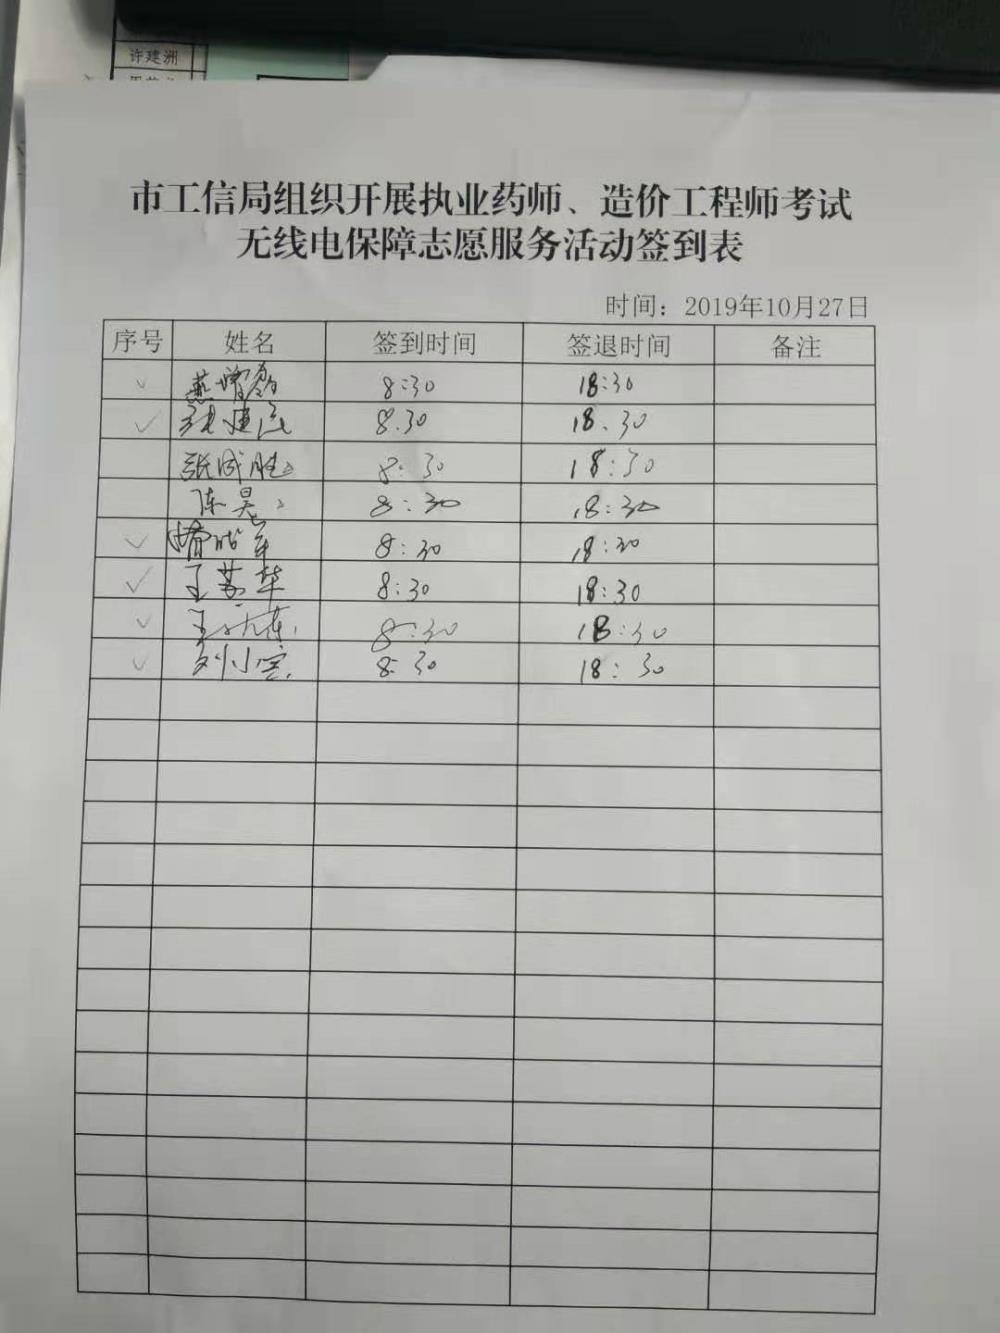 许建洲
市工信局组织开展执业药师、造价工程师考试
无线电保障志愿服务活动签到表
时间：2019年10月27日
序号 姓名 签到时间 签退时间 备注
✓ 8:30 18:30
✓ 8.30 18.30
张成胜 8:30 18:30
陈昊 8:30 18:30
✓ 8:30 18:30
✓ 王苏华 8:30 18:30
✓ 8:30 18:30
✓ 刘小宝 8:30 18:30